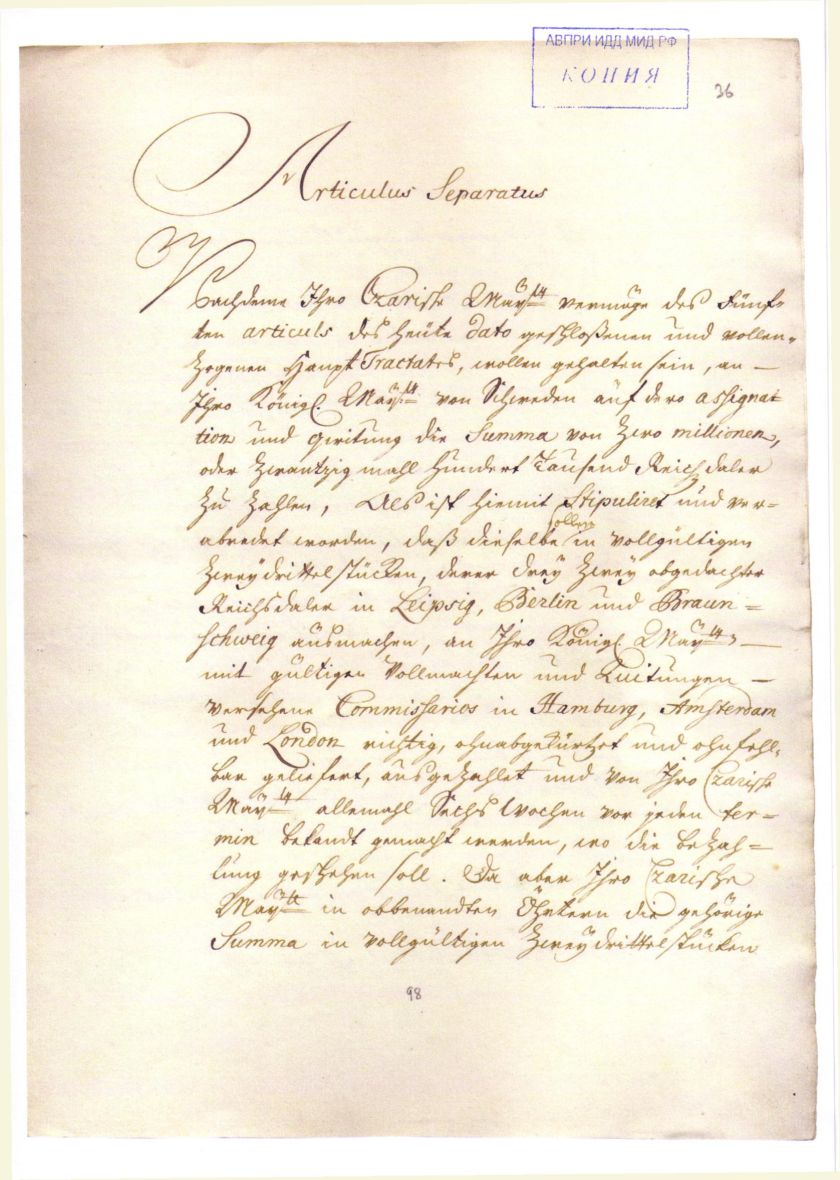 АВПРИ ИДД МИД РФ
КОПИЯ
36
Articulus Separatus
Nachdeme Ihro Czarische Maÿtt vermöge des Fünf=
ten articuls des heute dato geschloßenen und vollen=
zogenen Haupt Tractates, wollen gehalten sein, an —
Ihro Königl. Maÿtt von Schweden auf dero assigna=
tion und giritung die Summa von Zwo millionen,
oder Zwantzig mahl hundert Tausend Reichsdaler
zu zahlen, Als ist hiemit Stipuliret und ver=
abredet worden, daß dieselbe sollen in vollgültigen
Zweydrittelstücken, derer drey Zwey obgedachter
Reichsdaler in Leipzig, Berlin und Braun=
schweig ausmachen, an Ihro Königl. Maÿtt —
mit gültigen Vollmachten und Quitungen —
versehene Commissarios in Hamburg, Amsterdam
und London richtig, ohnabgekürtzet und ohnfehl=
bar geliefert, ausgezahlet und von Ihro Czarische
Maÿtt allemahl Sechs Wochen vor jeden ter=
min bekandt gemacht werden, wo die bezah=
lung geschehen soll. Da aber Ihro Czarische
Maÿtt in obbenandten Öhrtern die gehörige
Summa in vollgültigen Zweydrittelstücken
98